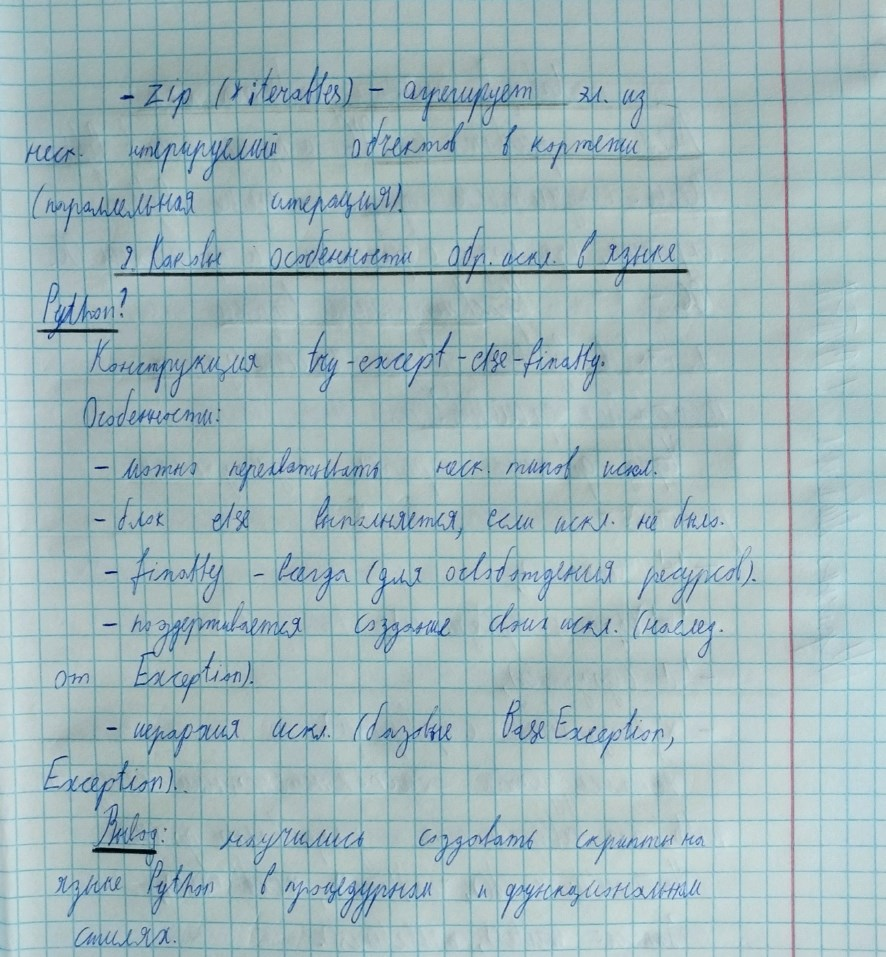 - zip (*iterables) - агрегирует эл. из
неск. итерируемый объектов в кортежи
(параллельная итерация).
8. Каковы особенности обр. искл. в языке
Python?
Конструкция try-except-else-finally.
Особенности:
- можно перехватывать неск. типов искл.
- блок else выполняется, если искл. не было.
- finally - всегда (для освобождения ресурсов).
- поддерживается создание своих искл. (наслед.
от Exception).
- иерархия искл. (базовые BaseException,
Exception).
Вывод: научились создавать скрипты на
языке Python в процедурном и функциональном
стилях.